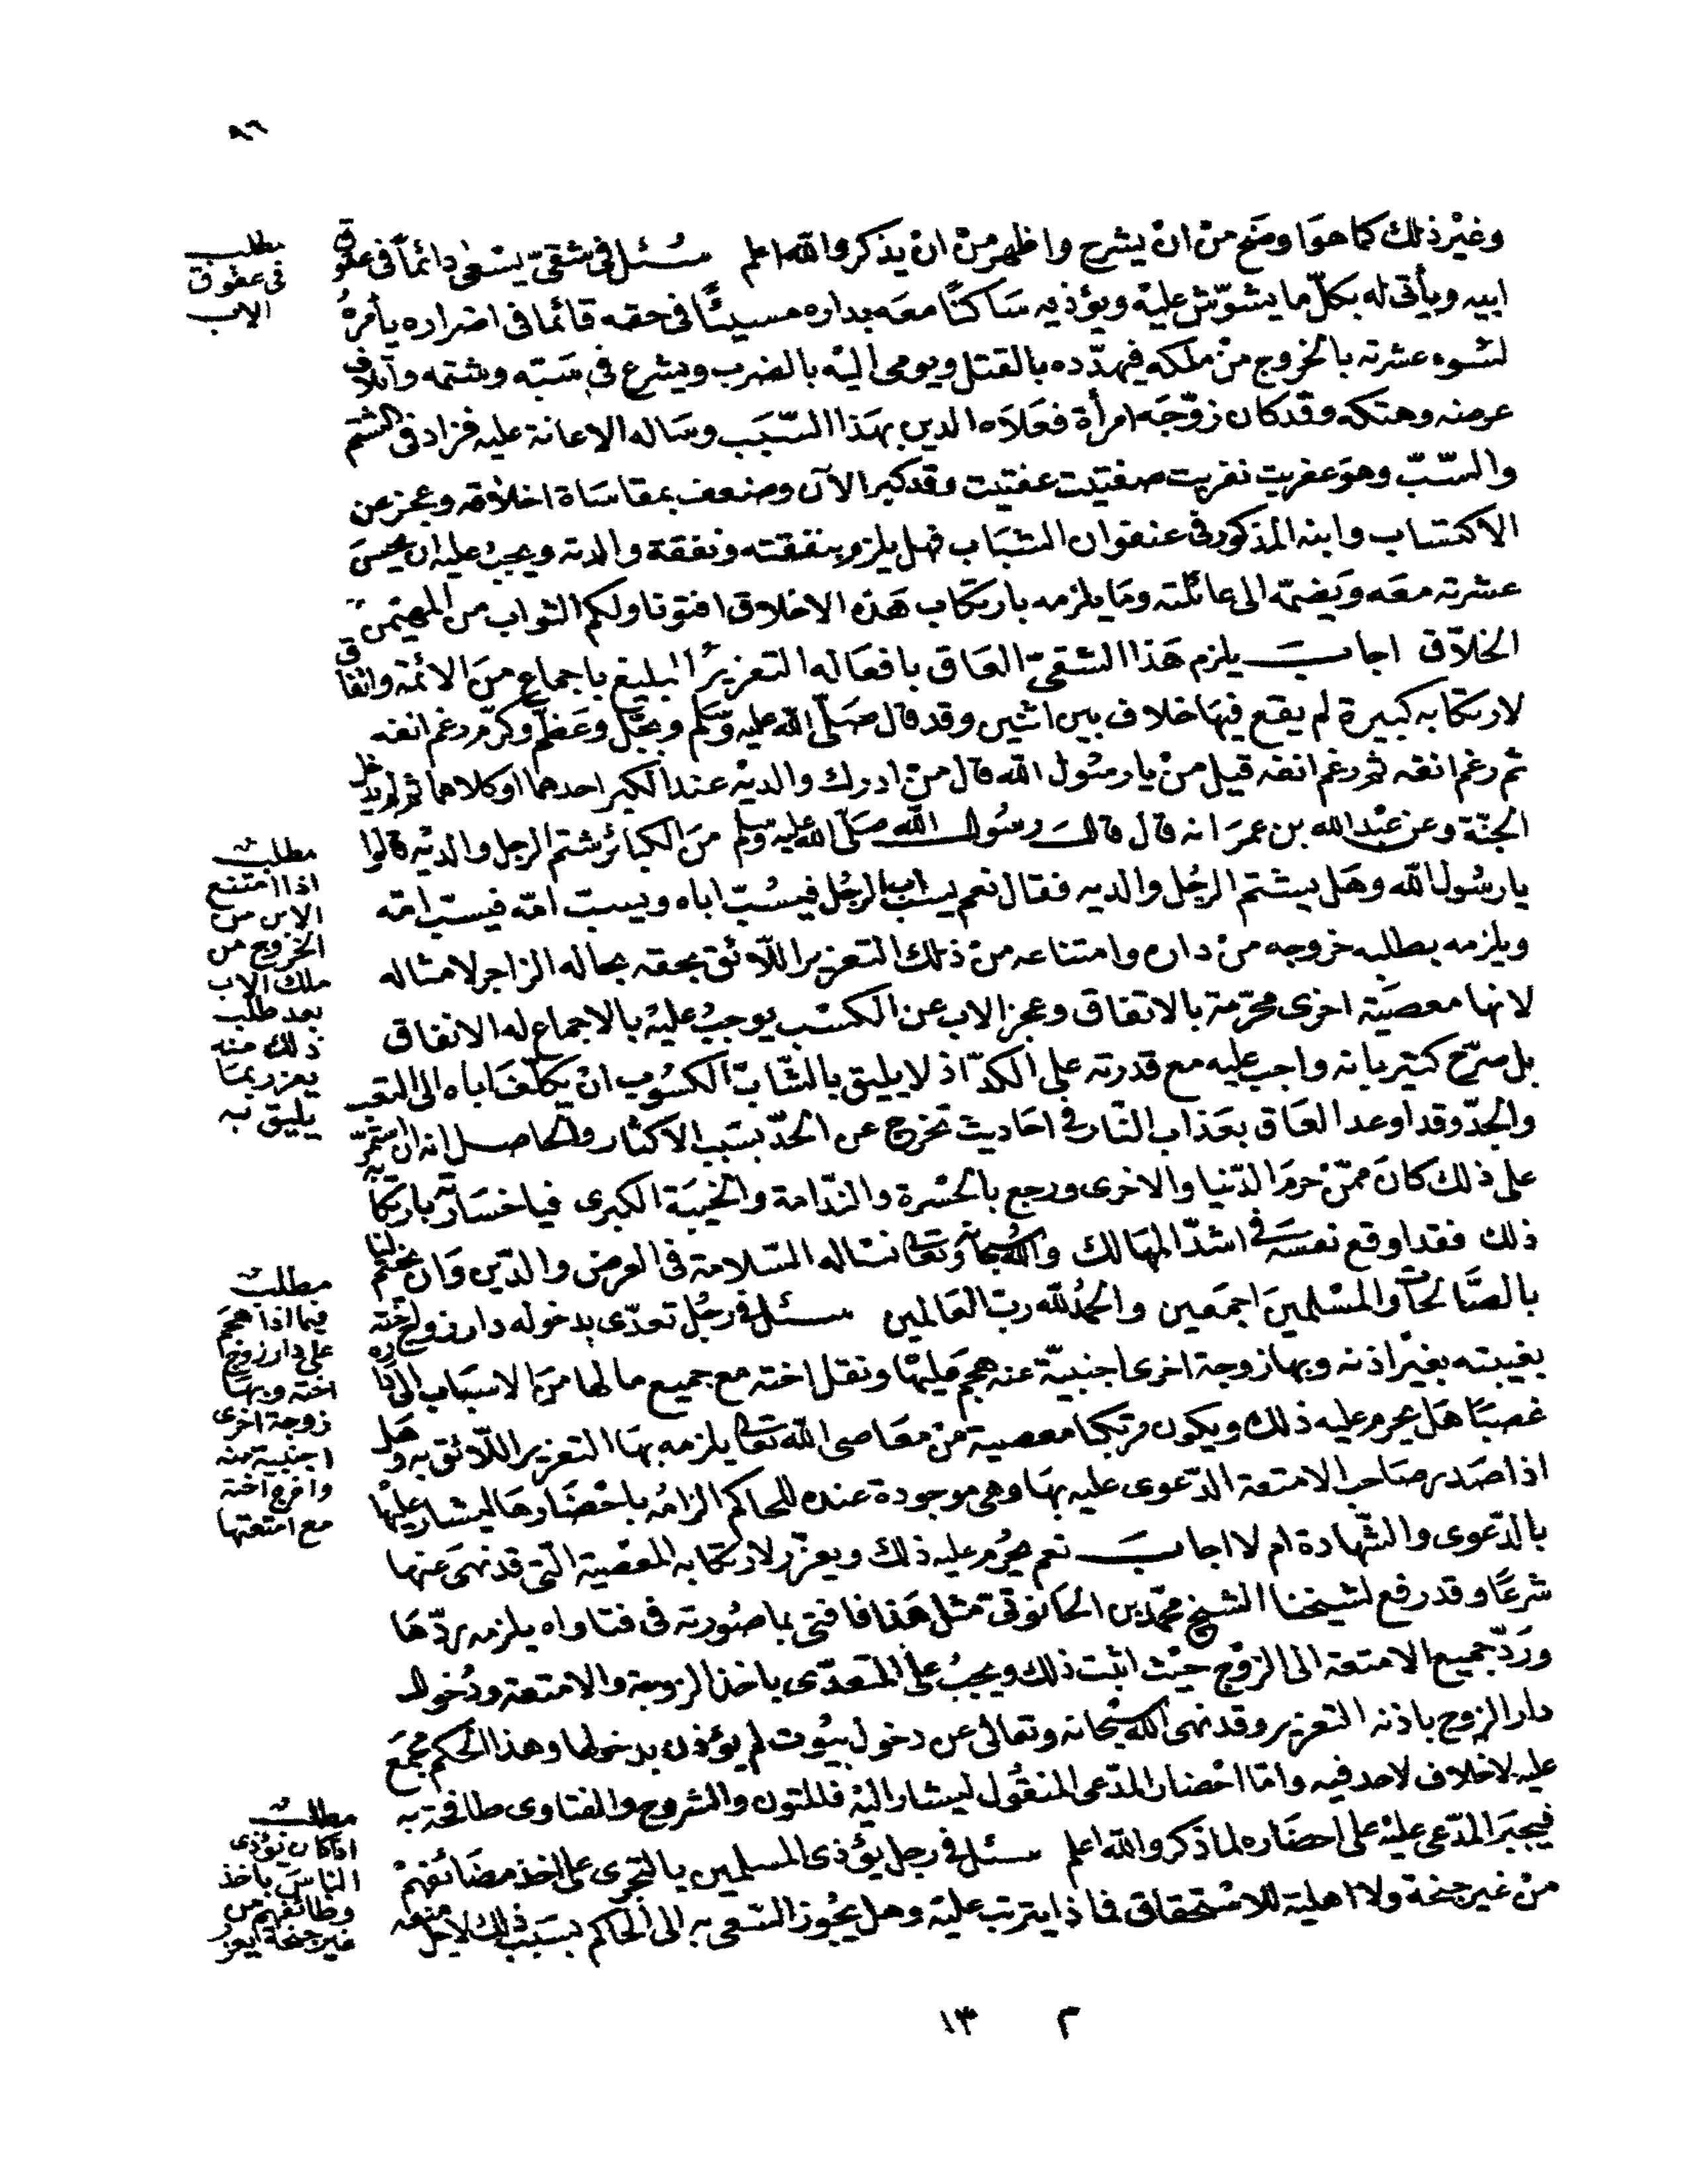 ٩٦
وغير ذلك كما هو اوضح من ان يشرح واظهر من ان يذكر والله اعلم سئل في شقي يسعى دائما في عقوق
ابيه ويأتي له بكل ما يشوش عليه ويؤذيه ساكنا معه بداره مسيئا في حقه قائما في اضراره يأمره
لسوء عشرته بالخروج من ملكه فيهدده بالقتل ويومي اليه بالضرب ويشرع في سبه وشتمه واتلاف
عرضه وهتكه وقد كان زوجه امرأة فعلاه الدين بهذا السبب وساله الاعانة عليه فزاد في الشتم
والسب وهو عفريت نفريت صفتيت عفتيت وقد كبر الآن وضعف بمقاساة اخلاقه وعجز عن
الاكتساب وابنه المذكور في عنفوان الشباب فهل يلزم بنفقته ونفقة والدته ويجب عليه ان يحسن
عشرته معه ويضمه الى عائلته وما يلزمه بارتكاب هذه الاخلاق افتونا ولكم الثواب من المهيمن
الخلاق اجاب يلزم هذا الشقي العاق بافعاله التعزير البليغ باجماع من الائمة واتفاق
لارتكابه كبيرة لم يقع فيها خلاف بين اثنين وقد قال صلى الله عليه وسلم وبجل وعظم وكرم رغم انفه
ثم رغم انفه ثم رغم انفه قيل من يا رسول الله قال من ادرك والديه عند الكبر احدهما او كلاهما ثم لم يدخل
الجنة وعن عبد الله بن عمر انه قال قال رسول الله صلى الله عليه وسلم من الكبائر شتم الرجل والديه قالوا
يا رسول الله وهل يشتم الرجل والديه فقال نعم يسب ابا الرجل فيسب اباه ويسب امه فيسب امه
ويلزمه بطلبه خروجه من داره وامتناعه من ذلك التعزير اللائق بحقه بحاله الزاجر لامثاله
لانها معصية اخرى محرمة بالاتفاق وعجز الاب عن الكسب يوجب عليه بالاجماع له الانفاق
بل صرح كثير بانه واجب عليه مع قدرته على الكد اذ لا يليق بالشاب الكسوب ان يكلف اباه الى التعب
والجد وقد اوعد العاق بعذاب النار في احاديث تخرج عن الحد بسبب الاكثار والحاصل انه ان استمر
على ذلك كان ممن حرم الدنيا والاخرى ورجع بالحسرة والندامة والخيبة الكبرى فيا خسارته بارتكابه
ذلك فقد اوقع نفسه في اشد المهالك والله سبحانه وتعالى نساله السلامة في العرض والدين وان يختم لنا
بالصالحات والمسلمين اجمعين والحمد لله رب العالمين سئل في رجل تعدى بدخوله دار زوج اخته
بغيبته بغير اذنه وبها زوجة اخرى اجنبية عنه هجم عليها ونقل اخته مع جميع ما لها من الاسباب الى داره
غصبا هل يحرم عليه ذلك ويكون مرتكبا معصية من معاصي الله تعالى يلزمه بها التعزير اللائق به وهل
اذا صدر صاحب الامتعة الدعوى عليه بها وهي موجودة عنده للحاكم الزامه باحضارها ليشار عليها
بالدعوى والشهادة ام لا اجاب نعم يحرم عليه ذلك ويعزر لارتكابه المعصية التي قد نهى عنها
شرعا وقد رفع لشيخنا الشيخ محمد بن الحانوتي مثل هذا فافتى بما صورته في فتاواه يلزمه ردها
ورد جميع الامتعة الى الزوج حيث اثبت ذلك ويجب على المتعدي باخذ الزوجة والامتعة ودخول
دار الزوج باذنه التعزير وقد نهى الله سبحانه وتعالى عن دخول بيوت لم يؤذن بدخولها وهذا الحكم مجمع
عليه لا خلاف لاحد فيه واما احضار المدعى المنقول ليشار اليه فللمتون والشروح والفتاوى طافحة به
فيجبر المدعى عليه على احضاره لما ذكر والله اعلم سئل في رجل يؤذي المسلمين بالتجري على اخذ مصائفهم
من غير جنحة ولا اهلية للاستحقاق فماذا يترتب عليه وهل يجوز السعي به الى الحاكم بسبب ذلك لاجل منعه
مطلب
في عقوق
الاب
مطلب
اذا امتنع
الابن من
الخروج من
ملك الاب
بعد طلب
ذلك منه
يعزر بما
يليق به
مطلب
فيما اذا هجم
على دار زوج
اخته وبها
زوجة اخرى
اجنبية عنه
واخرج اخته
مع امتعتها
مطلب
اذا كان يؤذي
الناس باخذ
وظائفهم من
غير جنحة يعزر
م ١٣